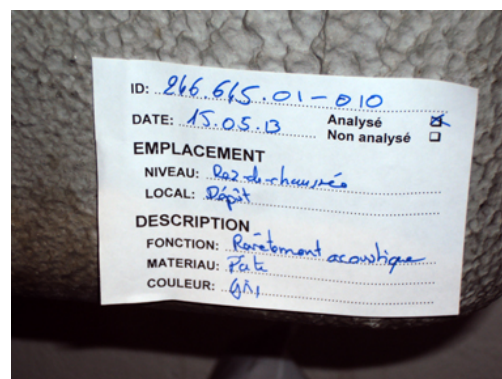 ID: 246.645.01-010
DATE: 15.05.13 Analysé ☒
Non analysé ☐
EMPLACEMENT
NIVEAU: Rez-de-chaussée
LOCAL: Dépôt
DESCRIPTION
FONCTION: Revêtement acoustique
MATERIAU: Pate
COULEUR: Gris